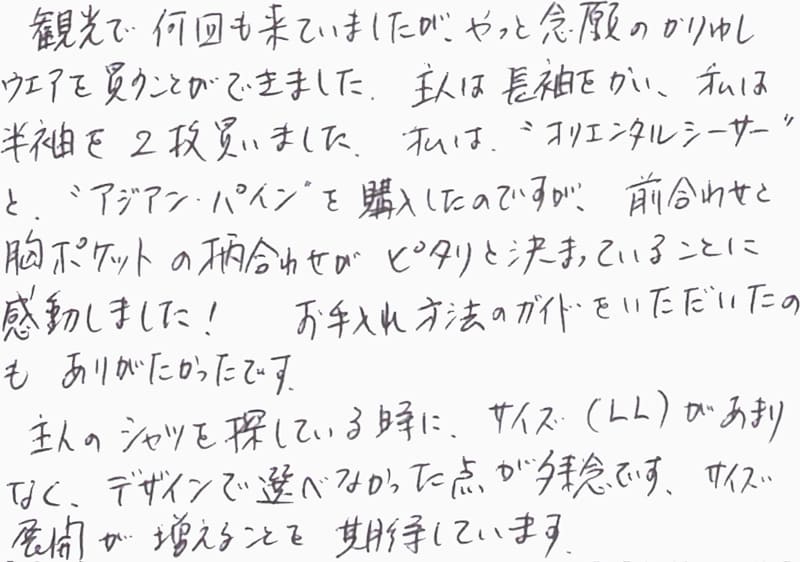 観光で何回も来ていましたが、やっと念願のかりゆし
ウエアを買うことができました。主人は長袖をかい、私は
半袖を2枚買いました。私は、“オリエンタルシーサー”
と、“アジアン・パイン”を購入したのですが、前合わせと
胸ポケットの柄合わせがピタリと決まっていることに
感動しました! お手入れ方法のガイドをいただいたの
も ありがたかったです。
主人のシャツを探している時に、サイズ(LL)があまり
なく、デザインで選べなかった点が残念です。サイズ
展開が増えることを期待しています。